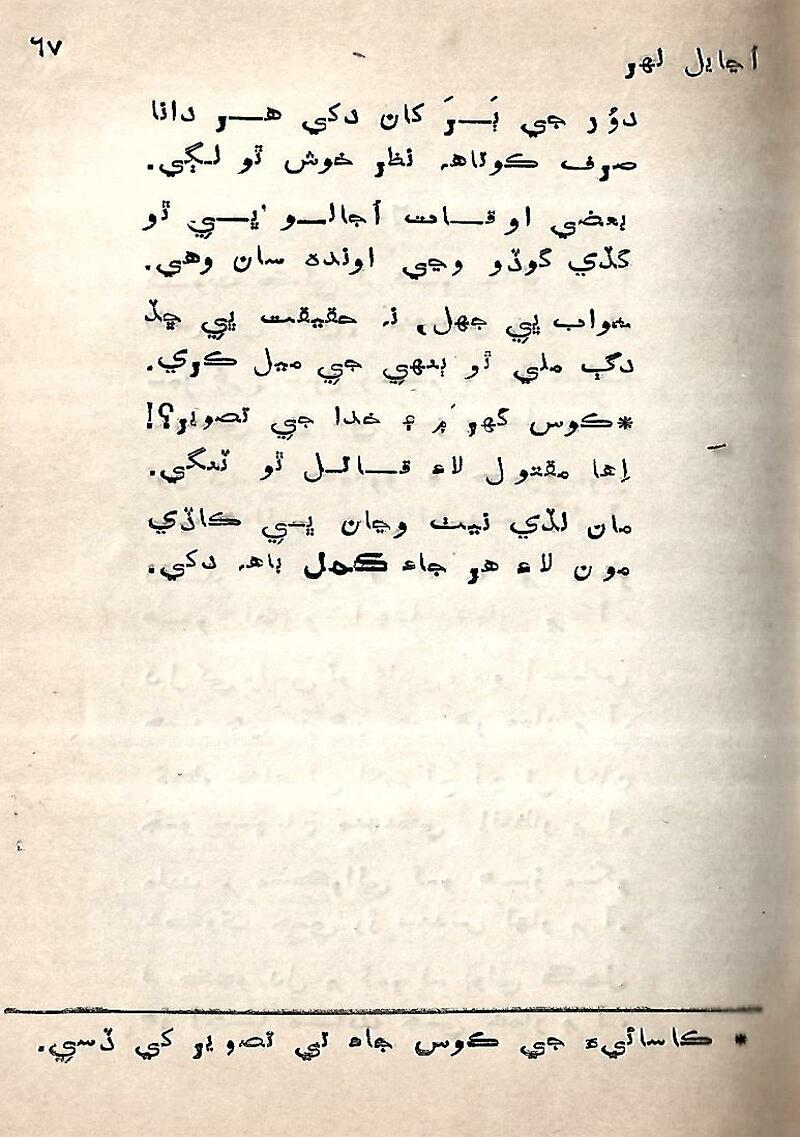 اڃايل لهر
٦٧
دؤر جي ٻَـرَ کان دکي هـر دانا
صرف ڪوتاهه نظر خوش ٿو لڳي.
بعضي اوقـات اُجالـو ۾ پـي ٿو
گڏي گوڏو وڃي اونده سان وهي.
خواب ڀي جهل، نہ حقيقت ڀي ڇڏ
دڳ ملي ٿو ٻنهي جي ميل ڪري.
*ڪوس گهر ۾ ۽ خدا جي تصوير؟!
اِها مقتول لاءِ قـاتـل ٿو ٽنگي.
مان لڏي نيٺ وڃان ڀـي ڪاڏي
مون لاءِ هر جاءِ ڪمل باهه دکي.
* ڪاسائيءَ جي ڪوس جاه تي تصوير کي ڏسي.